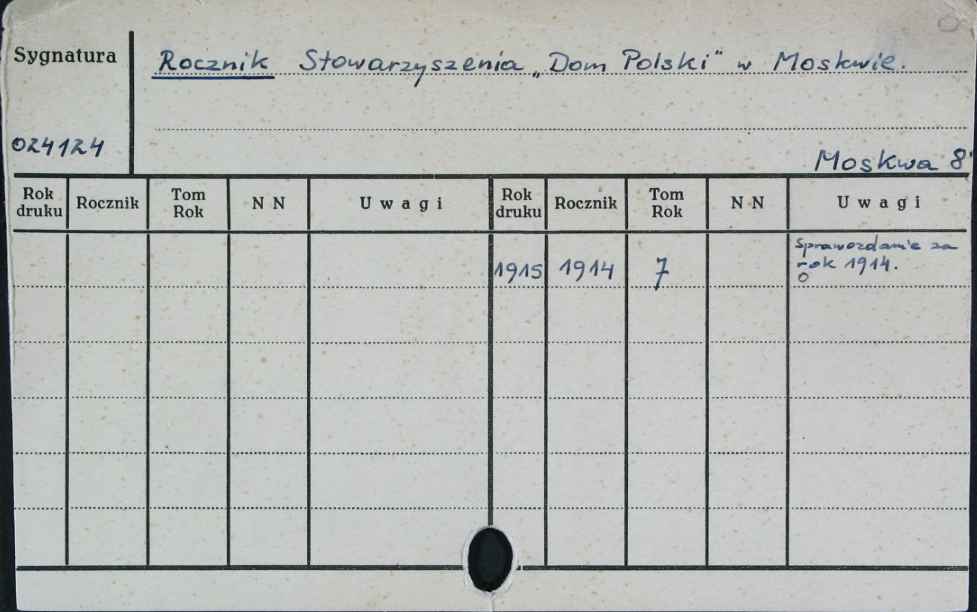 Sygnatura
Rocznik Stowarzyszenia „Dom Polski" w Moskwie.
024124
Moskwa 8°
Rok druku Rocznik Tom Rok N N Uwagi Rok druku Rocznik Tom Rok N N Uwagi
Sprawozdanie za
1915 1914 7 rok 1914.
0